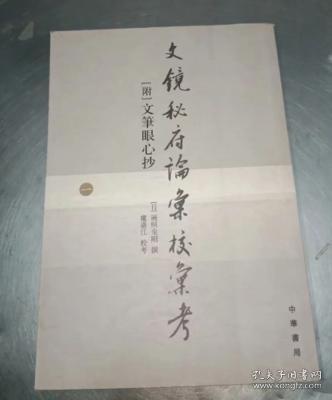 文镜秘府論彙校彙考
[附]文筆眼心抄
一
[日]遍照金剛 撰
盧盛江 校考
中華書局
孔夫子旧书网